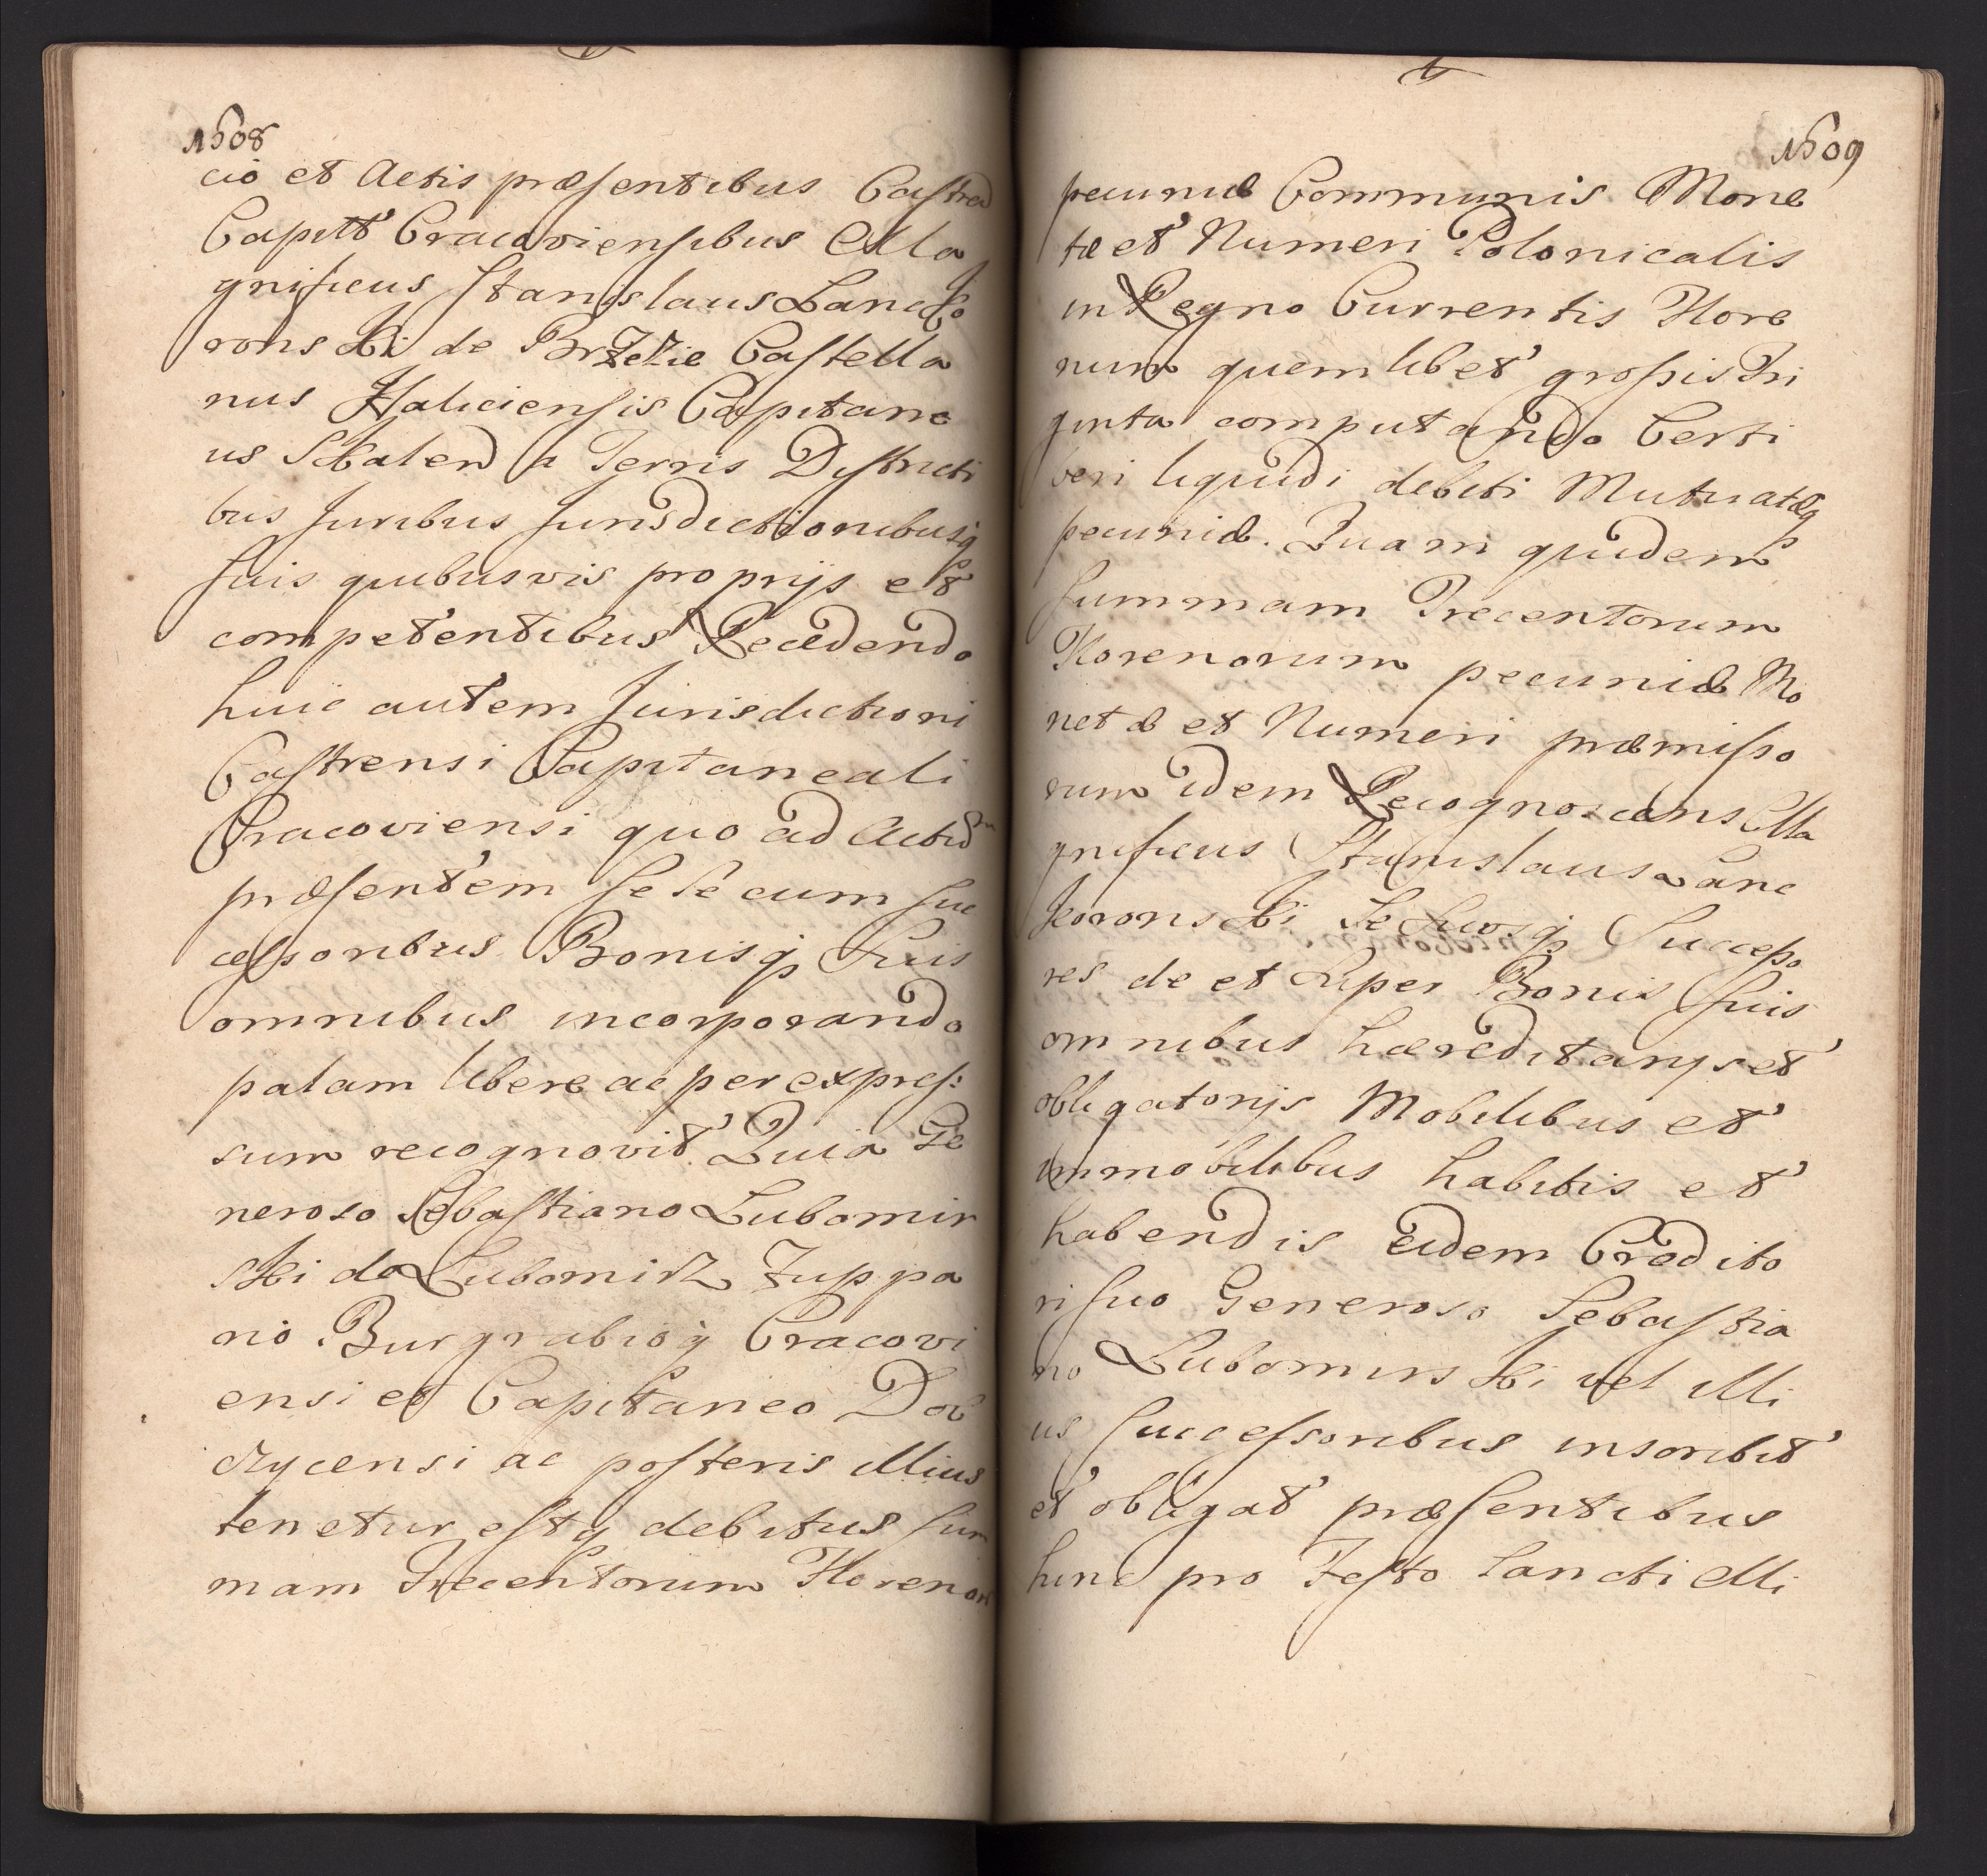 1508
cio et Actis præsentibus Castren
Capitt Cracoviensibus Ma
gnificus Stanislaus Lancko
ronski de Brzezie Castella
nus Haliciensis Capitane
us Skalen a Terris Districti
bus Juribus Jurisdictionibusq
suis quibusvis proprijs et
competentibus Recedendo
huic autem Jurisdictioni
Castrensi Capitaneali
Cracoviensi quo ad Actum
præsentem se se cum suc
cessoribus Bonisq Suis
omnibus incorporando
palam libere ac per expres:
sum recognovit Quia Ge
neroso Sebastiano Lubomir
ski de Lubomirz Zuppa
rio Burgrabioq Cracovi
ensi et Capitaneo Dob
czycensi ac posteris illius
tenetur estq debitus Sum
mam Trecentorum Florenor
1509
pecuniæ Communis Mone
tæ et Numeri Polonicalis
in Regno Currentis Flore
num quemlibet grossis Tri
ginta computando Certi
veri liquidi debiti Mutuatæq
pecuniæ. Quam quidem
Summam Trecentorum
Florenorum pecuniæ Mo
netæ et Numeri præmisso
rum idem Recognoscens Ma
gnificus Stanislaus Lanc
koronski Se Suosq Successo
res de et super Bonis suis
omnibus hæreditarijs et
obligatorijs Mobilibus et
immobilibus habitis et
habendis eidem Credito
ri suo Generoso Sebastia
no Lubomirski vel illi
us Successoribus inscribit
et obligat præsentibus
hinc pro Festo Sancti Mi